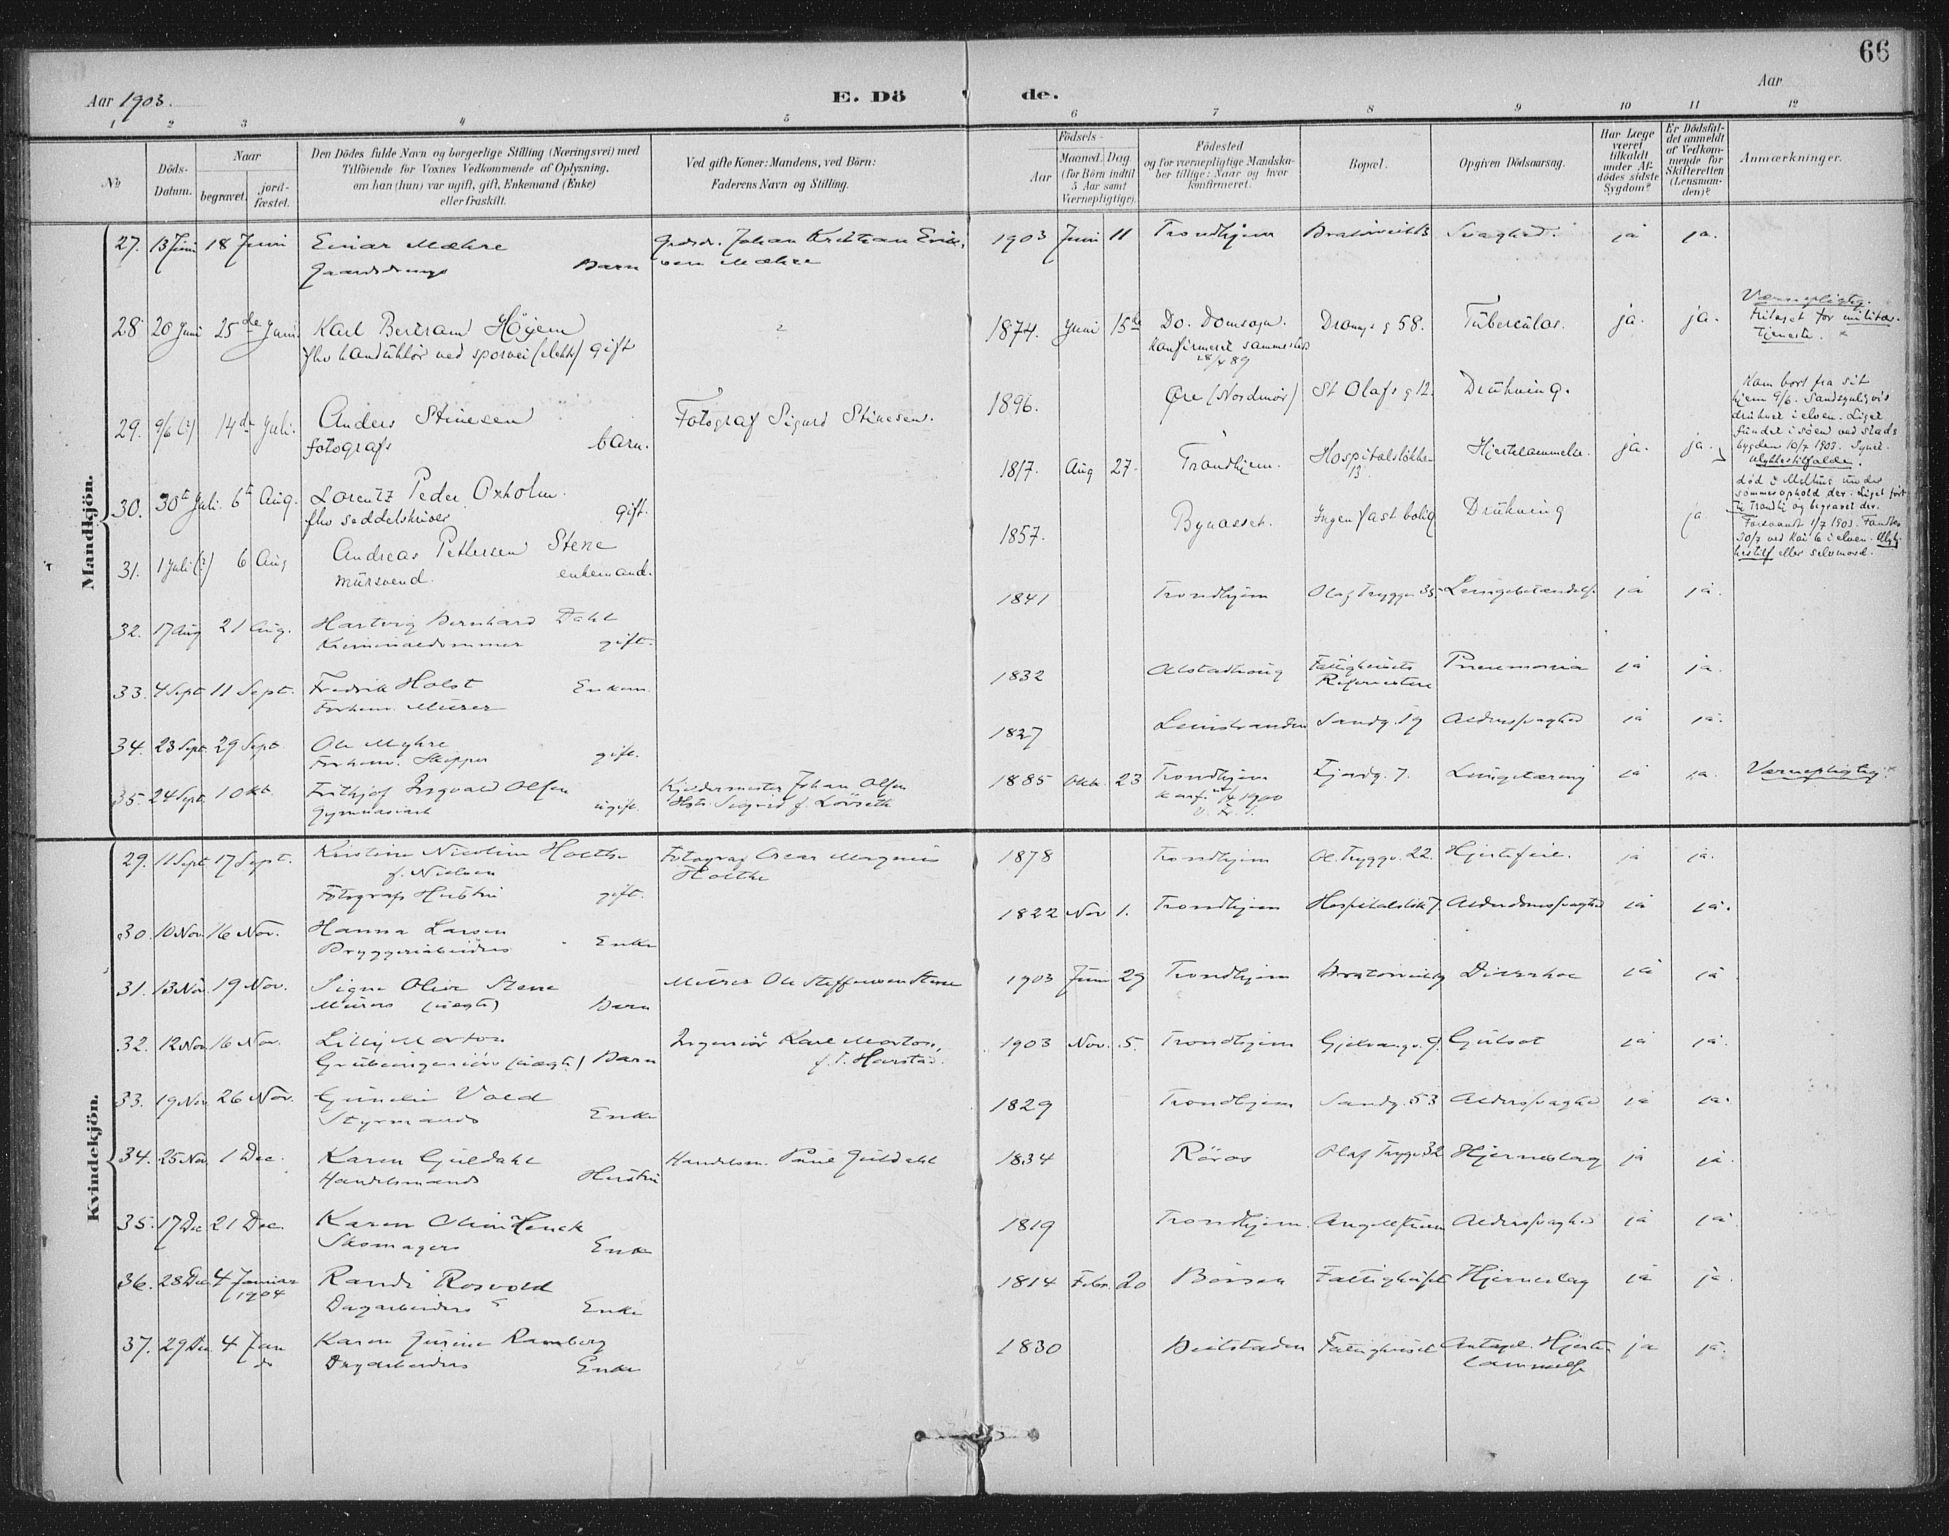 66
Aar 1903.
E. Dö de.
Aar
1 2 3 4 5 6 7 8 9 10 11 12
No
Döds-Datum.
Naar
begravet.
jord-fæstet.
Den Dödes fulde Navn og borgerlige Stilling (Næringsvei) med
Tilföiende for Voxnes Vedkommende af Oplysning,
om han (hun) var ugift, gift, Enkemand (Enke)
eller fraskilt.
Ved gifte Koner: Mandens, ved Börn:
Faderens Navn og Stilling.
Födsels-
Aar
Maaned. Dag
(for Börn indtil
5 Aar samt
Værnepligtige).
Födested
og for værnepligtige Mandska-
ber tillige: Naar og hvor
konfirmeret.
Bopæl.
Opgiven Dödsaarsag.
Har Læge
været
tilkaldt
under Af-
dödes sidste
Sygdom?
Er Dödsfal-
det anmeldt
af Vedkom-
mende for
Skifteretten
(Lensman-
den)?
Anmærkninger.
Mandkjön.
27. 13 Juni 18 Juni Einar Mæhre Johan Kristian 1903 Juni 11 Trondhjem Svaghed. ja ja.
Barn Mæhre
28 20 Juni 25de Juni Karl Bertram Höyem 1874. Juni 15de Do. Domsogn. 58. Tuberculos. ja. ja. Værnepligtig.
fhv konduktör ved sporvei (elektr) gift Konfirmeret sammesteds Fritaget for militær-
28/4 89 tjeneste.
29. 9/6 (?) 14de Juli. Anders Stinesen Fotograf Sigurd Stinesen. 1896. Øre (Nordmör) St Olafs g 12. Drukning.
fotografs barn.
Kom bort fra sit
hjem 9/6. Sandsynligvis
druknet i elven. Liget
fundet i søen ved Stads
bygden 10/7 1903.
Ulykkestilfælde.
30. 30te Juli 6te Aug. Lorentz Peder Oxholm. 1817. Aug 27. Trondhjem. Hospitalsløkken 13. Hjertelammelse. ja. ja.
fhv saddelskriver gift.
død i Melhus under
sommerophold der. Liget ført
til Trondhj og begravet der.
31. 1 Juli (?) 6 Aug Andreas Pettersen Stene 1857. Bynæsset. Ingen fast bolig Drukning ja
mursvend. enkemand.
Forsvandt 1/7 1903. Fandtes
30/7 ved Kai 6 i elven.
eller selvmord.
32. 17 Aug 21 Aug. Hartvig Bernhard Dahl 1841 Trondhjem Olaf Trygg. 35. Lungebetændelse ja ja.
gift.
33. 4 Sept 11 Sept. Fredrik Holst Enkem. 1832 Alstadhaug Fattighusets Pneumonia ja ja.
Forhenv. Murer
34. 23 Sept. 29 Sept. Ole Myhre 1827 Leinstranden Sandg. 19 Alderssvaghed ja ja.
Forhenv. Skipper gift.
35. 24 Sept. 1 Okt. Frithjof Olsen Johan Olsen 1885 Okt. 23 Trondhjem Fjordg. 7. Lungetæring ja ja. Værnepligtig.
Gymnasiast ugift. Hstr. Sigrid f. Lövseth Konf. 1900
Kvindekjön.
29. 11 Sept 17 Sept. Kristine Nicoline Holthe Fotograf Oscar Magnus 1878 Trondhjem Ol. Tryggv. 22. Hjertefeil. ja ja.
f. Nielsen Holthe
Fotograf Hustru gift.
30. 10 Nov. 16 Nov. Hanna Larsen 1822 Nov 1. Trondhjem Alderdomssvaghed ja ja.
Bryggeriarbeiders Enke
31. 13 Nov. 19 Nov. Signe Olive Stene Murer Ole Steffensen Stene 1903 Juni 29 Trondhjem Diarrhoe ja ja
Murers (uægte) Barn
32. 12 Nov 16 Nov. Lilly Morton Ingeniör Karl Morton, 1903 Nov. 5. Trondhjem Gulsot ja ja.
Grubeingeniörs (uægte) Barn
33. 19 Nov 26 Nov. Vold 1829 Trondhjem Sandg. 53 Alderssvaghed ja ja.
Styrmands Enke
34. 25 Nov. 1 Dec. Karen Guldahl Handelsm. Paul Guldahl 1834 Röros Olaf Trygv. 32 Hjerneslag ja ja.
Handelsmands Hustru
35. 17 Dec 21 Dec. Karen 1819 Trondhjem. Alderssvaghed ja ja
Skomagers Enke
36. 28 Dec 4 Januar Randi Rosvold 1814 Febr. 20 Börsen Fattighuset Hjerneslag ja ja.
1904 Dagarbeiders Enke
37. 29 Dec 4 Jan Karen Ramberg 1830 Beitstaden Fattighuset Antagel. Hjerte- ja ja.
do Dagarbeiders Enke lammelse